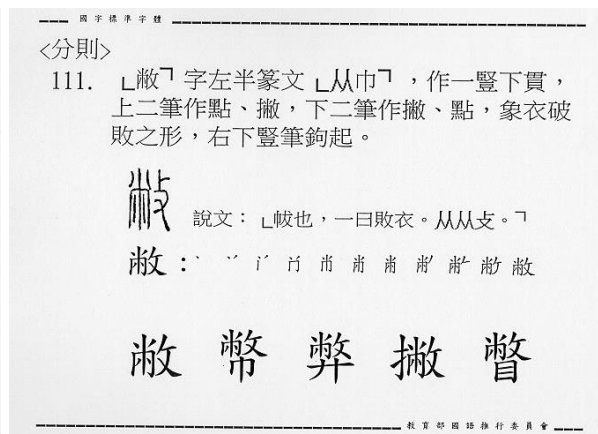 國字標準字體
<分則>
111. 「敝」字左半篆文「㡀」,作一豎下貫,
上二筆作點、撇,下二筆作撇、點,象衣破
敗之形,右下豎筆鉤起。
敝 說文:「帗也,一曰敗衣。从㡀从攴。」
敝:
敝 幣 弊 撇 瞥
教育部國語推行委員會